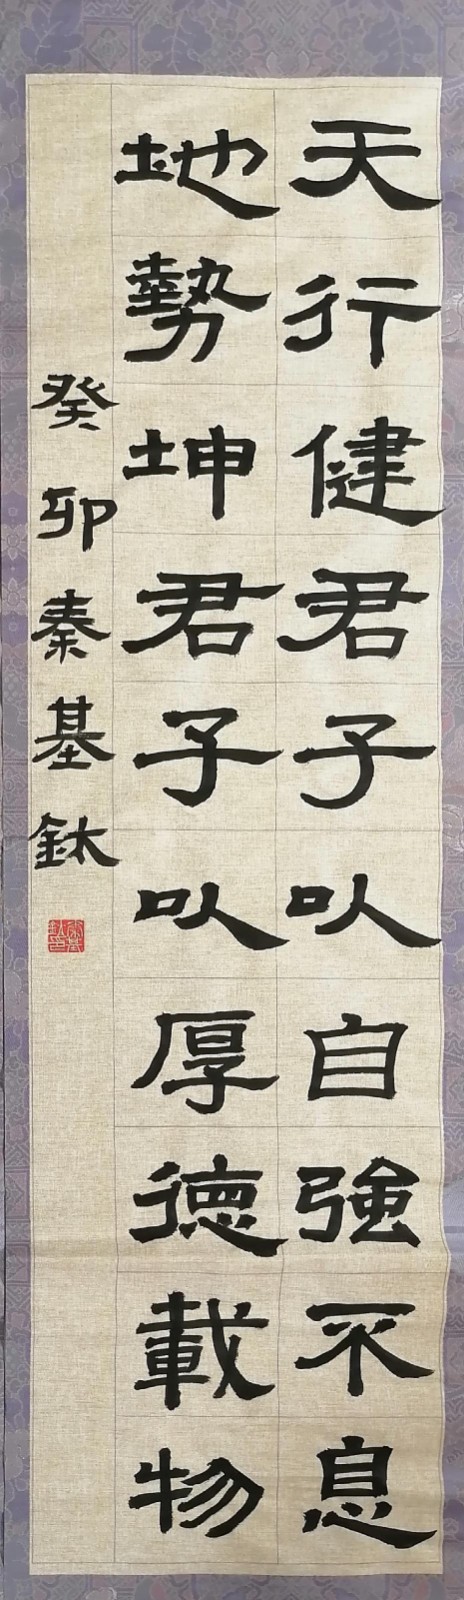 天行健君子以自強不息
地勢坤君子以厚德載物
癸卯秦基鈦